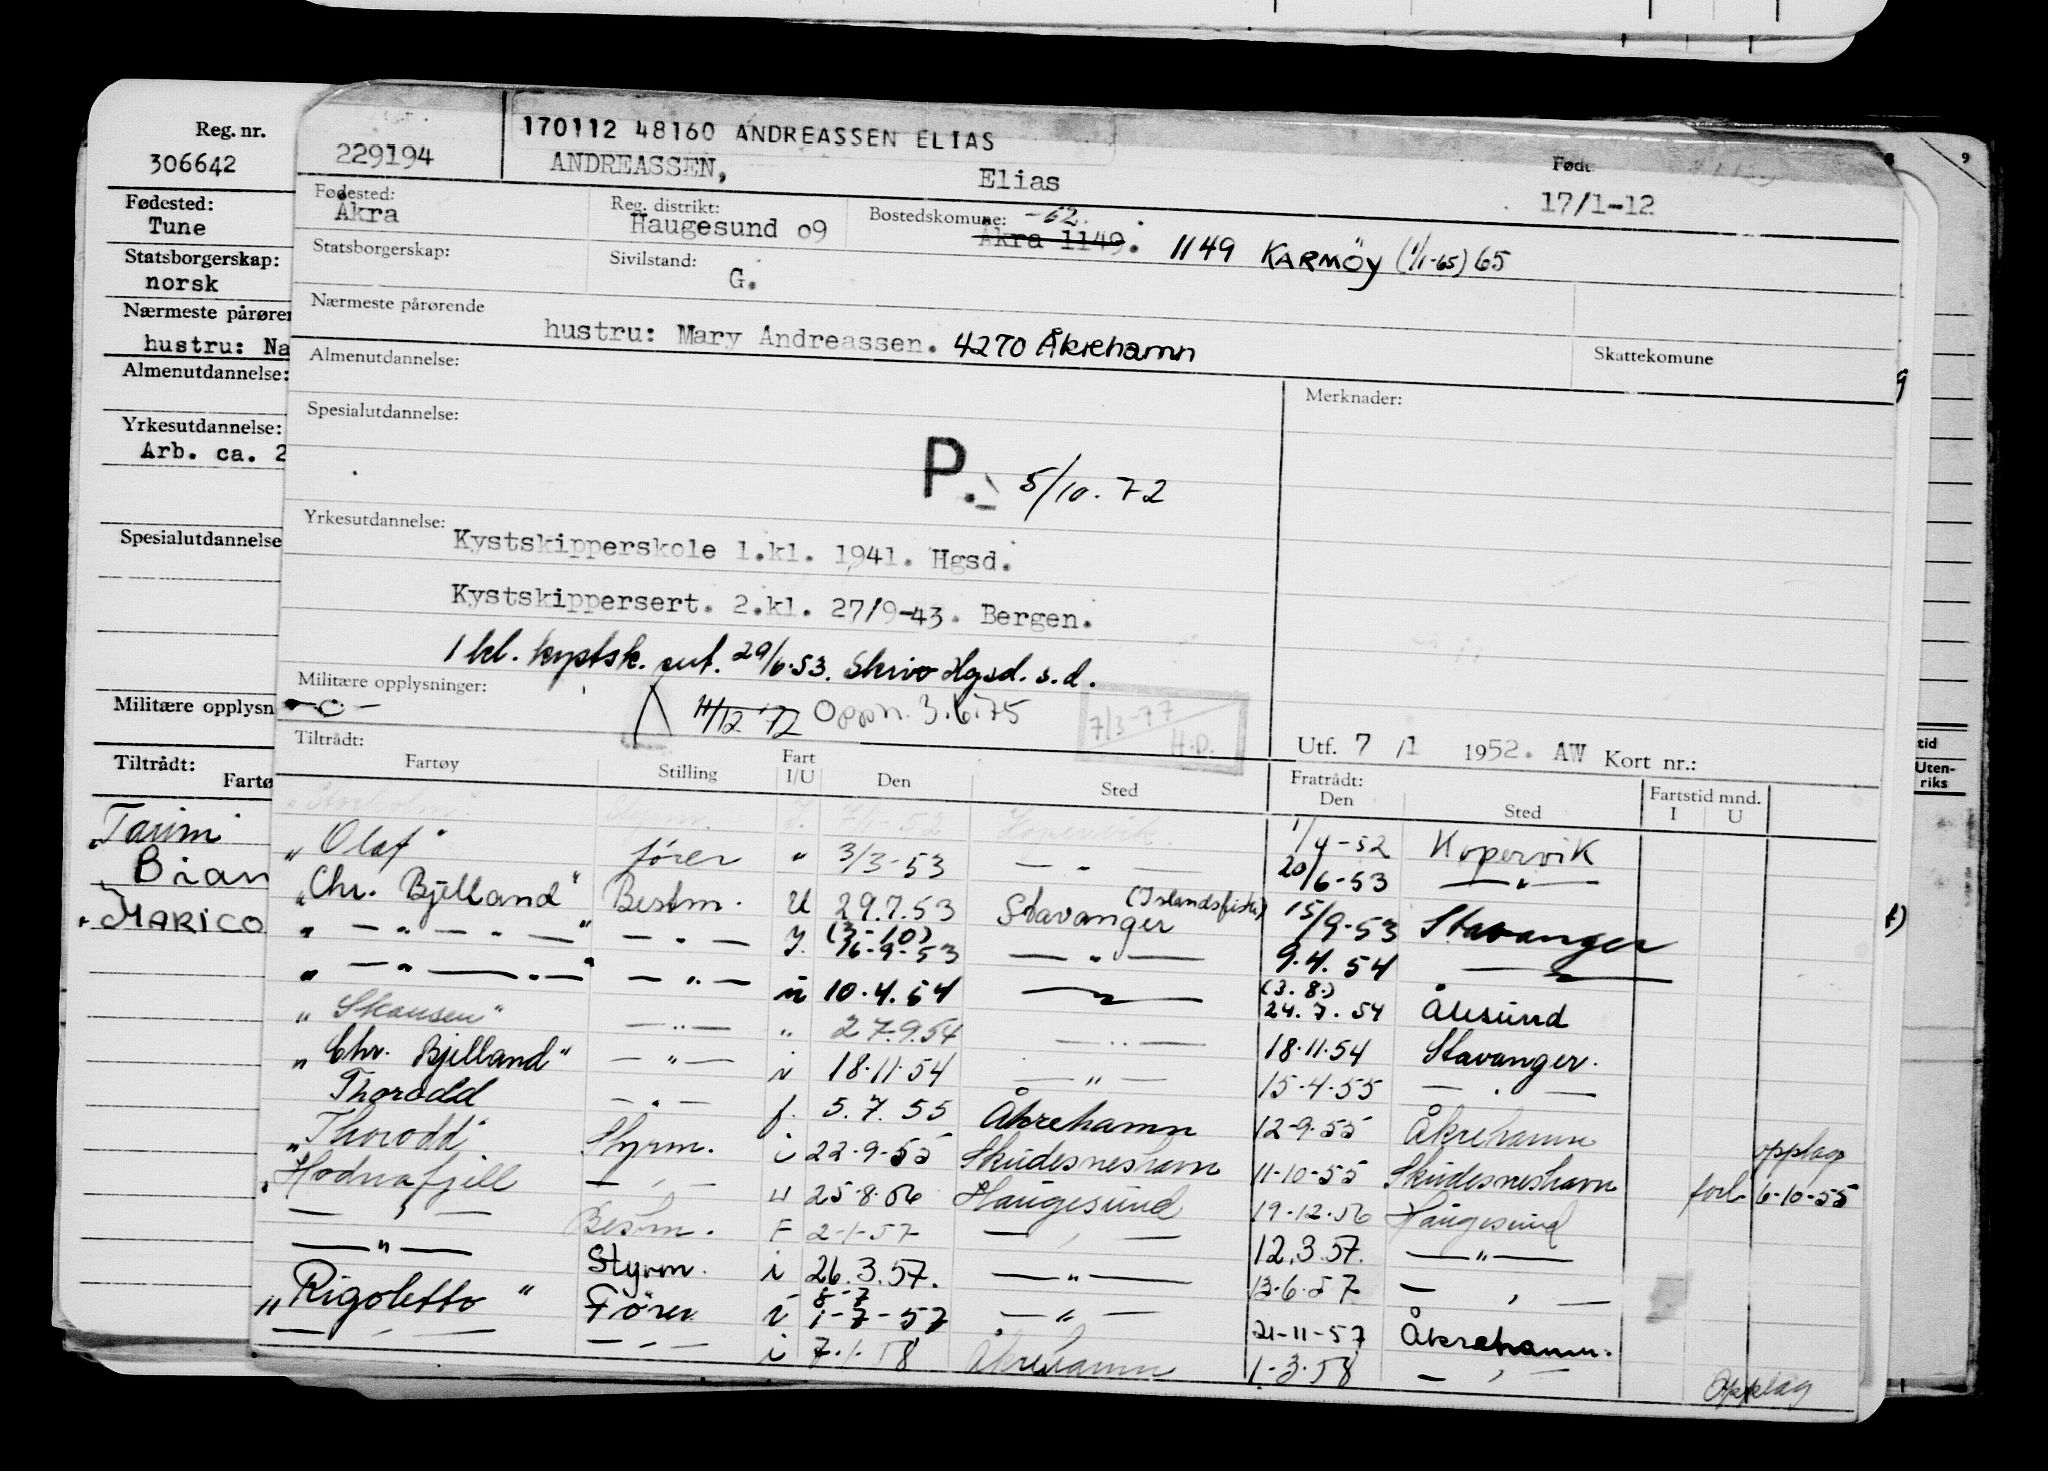 Reg. nr.
306642
Fødested:
Tune
Statsborgerskap:
norsk
Nærmeste pårører
hustru: Na
Almenutdannelse:
Yrkesutdannelse:
Arb. ca. 2
Spesialutdannelse
Militære opplysn
Tiltrådt:
Fartø
"Taurm
Brian
"MARICO
170112 48160 ANDREASSEN ELIAS
229194
ANDREASSEN, Elias
Født
17/1-12
Fødested:
Åkra
Reg. distrikt:
Haugesund 09
Bostedskomune: -62.
Åkra 1149. 1149 KARMÖY (1/1-65) 65
Statsborgerskap:
Sivilstand:
G.
Nærmeste pårørende
hustru: Mary Andreassen. 4270 Åkrehamn
Skattekomune
Almenutdannelse:
Merknader:
Spesialutdannelse:
P. 5/10. 72
Yrkesutdannelse:
Kystskipperskole 1.kl. 1941. Hgsd.
Kystskippersert. 2.kl. 27/9-43. Bergen.
1 kl. kystsk. sert. 29/6.53. Skriv Hgsd. s.d.
Militære opplysninger:
11/12 72 Oppn. 3.6.75
7/3-77
H.D.
Utf. 7/1 1952. AW Kort nr.:
Tiltrådt:
Fartøy Stilling Fart I/U Den Sted
Fratrådt:
Den Sted
Fartstid mnd.
I U
Kopervik 1/4-52 Kopervik
"Olaf" fører " 3/3-53 — " — 20/6-53 — " —
"Chr. Bjelland" Bestm. U 29.7.53 Stavanger (Islandsfiske) 15/9-53 Stavanger
" — " — " — " — " — I. (3-10) 16-9-53 — " — 9.4.54 — " —
" — " — " — " — " — u 10.4.54 — " — (3.8.) 24.7.54 Ålesund
"Skansen" — " — " 27.9.54 — " — 18.11.54 Stavanger.
"Chr. Bjelland" — " — i 18.11.54 — " — 15.4.55 — " —
Thorodd — " — f. 5.7.55 Åkrehamn 12-9-55 Åkrehamn
"Thorodd" Styrm. i 22-9-55 Skudesneshavn 11-10-55 Skudesneshavn forl. 6-10-55 opplag
"Hodnafjell — " — u 25.8.56 Haugesund 19-12-56 Haugesund
— " — Bestm. F 2-1-57 — " — 12.3.57. — " —
— " — Styrm. i 26.3.57. — " — 13.6.57 — " —
"Rigoletto" Fører i 8-7 1-7-57 — " — 21-11-57 Åkrehamn.
— " — — " — i 7.1.58 Åkrehamn 1.3.58 — " — Opplag
9
g
t)
tid
Uten-
riks